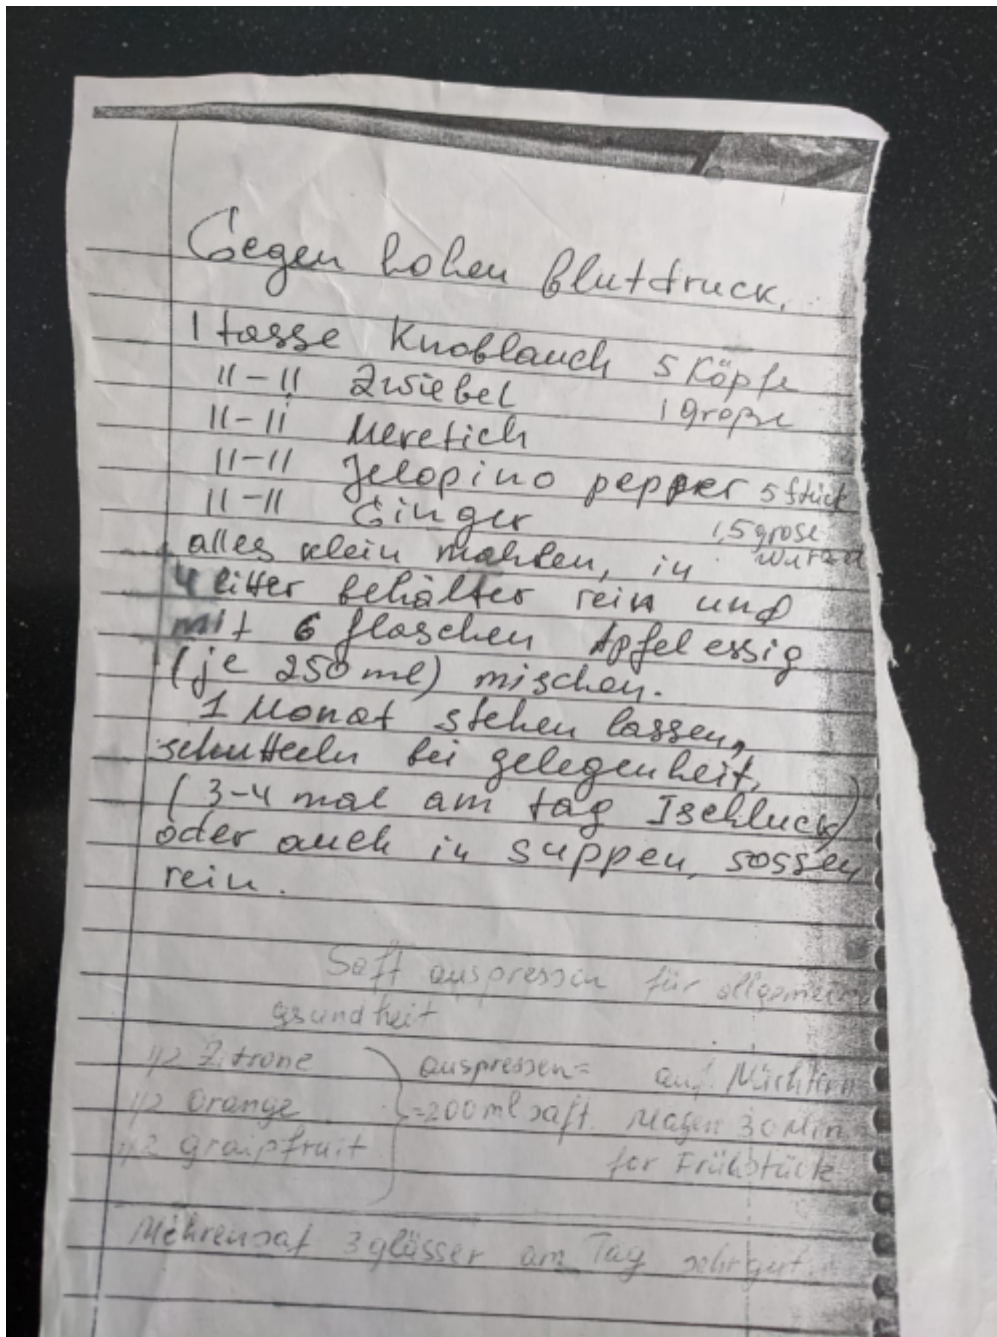 Gegen hohen Blutdruck.
1 tasse Knoblauch 5 Köpfe
11-11 Zwiebel 1 große
11-11 Meretich
11-11 Jelopino pepper 5 stück
11-11 Ginger 1,5 grose wurzel
alles klein mahlen, in
4 litter behälter rein und
mit 6 flaschen Apfelessig
(je 250 ml) mischen.
1 Monat stehen lassen,
schutteln bei gelegenheit,
(3-4 mal am tag 1schluck)
oder auch in suppen, sossen
rein.
Saft auspressen für allgemein
gsundheit
1/2 Zitrone auspressen= auf Nüchtern
1/2 Orange =200ml saft. Magen 30 Min
1/2 graipfruit for Frühstück
Möhrensaf 3 glässer am Tag sehr gut.